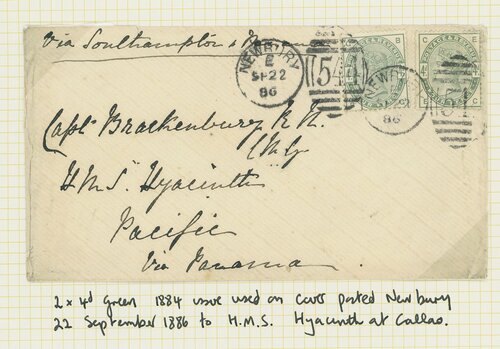 Via Southampton &
NEWBURY
E
SP 22
86
544
NEWBURY
86
Capt Brackenbury R.N.
C M G
H.M.S. Hyacinth
Pacific
Via Panama
2 x 4d Green 1884 issue used on cover posted Newbury
22 September 1886 to H.M.S. Hyacinth at Callao.